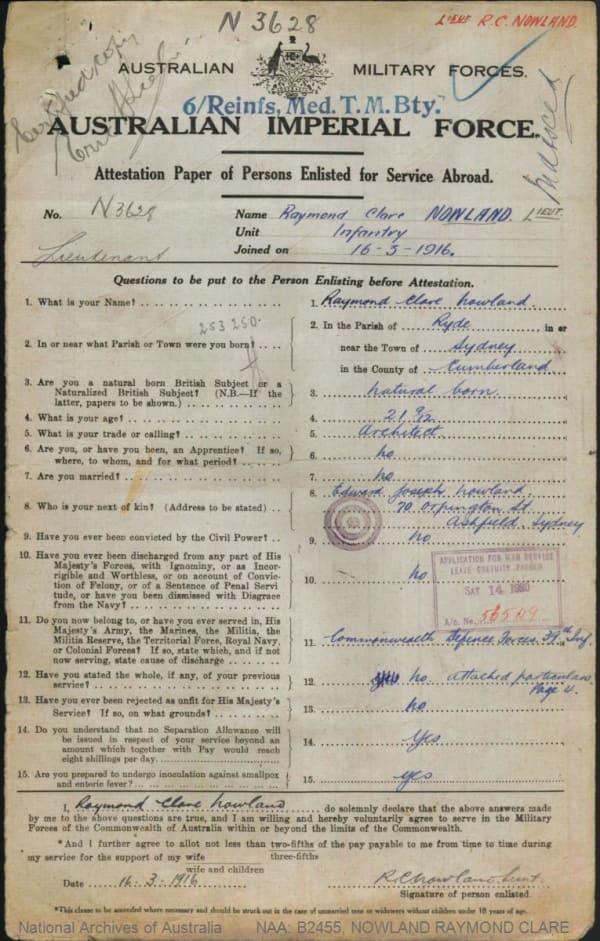 N 3628
LIEUT R.C. NOWLAND.
Certified copy
AUSTRALIAN MILITARY FORCES.
6/Reinfs, Med. T. M. Bty.
AUSTRALIAN IMPERIAL FORCE.
Attestation Paper of Persons Enlisted for Service Abroad.
No. N3628
Lieutenant
Name Raymond Clare NOWLAND. LIEUT.
Unit Infantry
Joined on 16-3-1916.
Questions to be put to the Person Enlisting before Attestation.
1. What is your Name? 1. Raymond Clare Nowland
253 250
2. In or near what Parish or Town were you born? 2. In the Parish of Ryde in or
near the Town of Sydney
in the County of Cumberland
3. Are you a natural born British Subject or a
Naturalized British Subject? (N.B.—If the
latter, papers to be shown.) 3. natural born
4. What is your age? 4. 21 9/12
5. What is your trade or calling? 5. Architect
6. Are you, or have you been, an Apprentice? If so,
where, to whom, and for what period? 6. no
7. Are you married? 7. no
8. Who is your next of kin? (Address to be stated) 8. Edward Joseph Nowland
70 Orpington St
Ashfield, Sydney
9. Have you ever been convicted by the Civil Power? 9. no
10. Have you ever been discharged from any part of His
Majesty's Forces, with Ignominy, or as Incor-
rigible and Worthless, or on account of Convic-
tion of Felony, or of a Sentence of Penal Servi
tude, or have you been dismissed with Disgrace
from the Navy? 10. no
APPLICATION FOR WAR SERVICE
LEAVE GRATUITY PASSED
SAT 14
A/c. No. 56549
11. Do you now belong to, or have you ever served in, His
Majesty's Army, the Marines, the Militia, the
Militia Reserve, the Territorial Force, Royal Navy,
or Colonial Forces? If so, state which, and if not
now serving, state cause of discharge 11. Commonwealth Defence Forces 39th Inf.
12. Have you stated the whole, if any, of your previous
service? 12. no attached particulars
Page 4.
13. Have you ever been rejected as unfit for His Majesty's
Service? If so, on what grounds? 13. no
14. Do you understand that no Separation Allowance will
be issued in respect of your service beyond an
amount which together with Pay would reach
eight shillings per day. 14. Yes
15. Are you prepared to undergo inoculation against smallpox
and enteric fever? 15. yes
I, Raymond Clare Nowland do solemnly declare that the above answers made
by me to the above questions are true, and I am willing and hereby voluntarily agree to serve in the Military
Forces of the Commonwealth of Australia within or beyond the limits of the Commonwealth.
*And I further agree to allot not less than two-fifths of the pay payable to me from time to time during
three-fifths
my service for the support of my wife
wife and children
Date 16-3-1916 R.C. Nowland Lieut
Signature of person enlisted.
*This clause to be amended where necessary and should be struck out in the case of unmarried men or widowers without children under 18 years of age.
National Archives of Australia NAA: B2455, NOWLAND RAYMOND CLARE